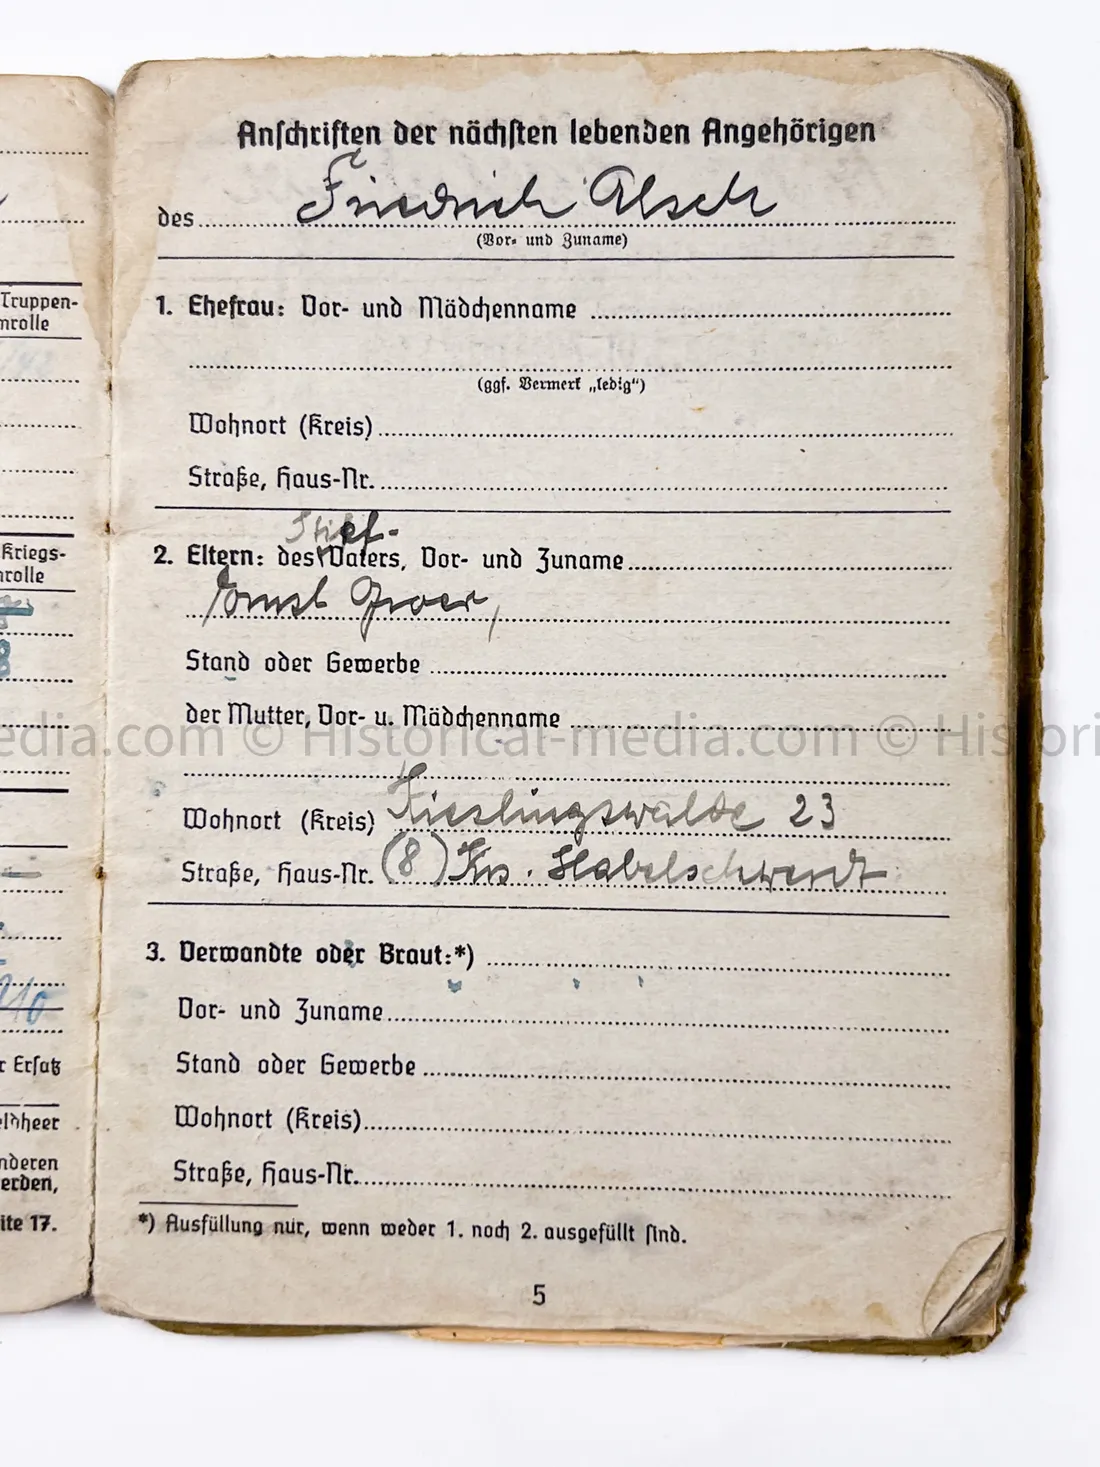 Truppen-
rolle
Kriegs-
rolle
8
r Ersatz
eldheer
nderen
erden,
ite 17.
Anschriften der nächsten lebenden Angehörigen
des Friedrich Alsch
(Vor- und Zuname)
1. Ehefrau: Vor- und Mädchenname
(ggf. Vermerk „ledig“)
Wohnort (Kreis)
Straße, Haus-Nr.
Stief-
2. Eltern: des Vaters, Vor- und Zuname
Ernst
Stand oder Gewerbe
der Mutter, Vor- u. Mädchenname
edia.com © Historical-media.com © Histori
Wohnort (Kreis) Kieslingswalde 23
Straße, Haus-Nr. (8) Krs. Habelschwerdt
3. Verwandte oder Braut:*)
Vor- und Zuname
Stand oder Gewerbe
Wohnort (Kreis)
Straße, Haus-Nr.
*) Ausfüllung nur, wenn weder 1. noch 2. ausgefüllt sind.
5